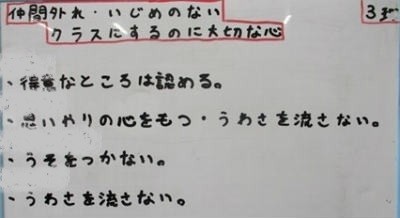 仲間外れ・いじめのない
クラスにするのに大切な心
3
・得意なところは認める。
・思いやりの心をもつ・うわさを流さない。
・うそをつかない。
・うわさを流さない。